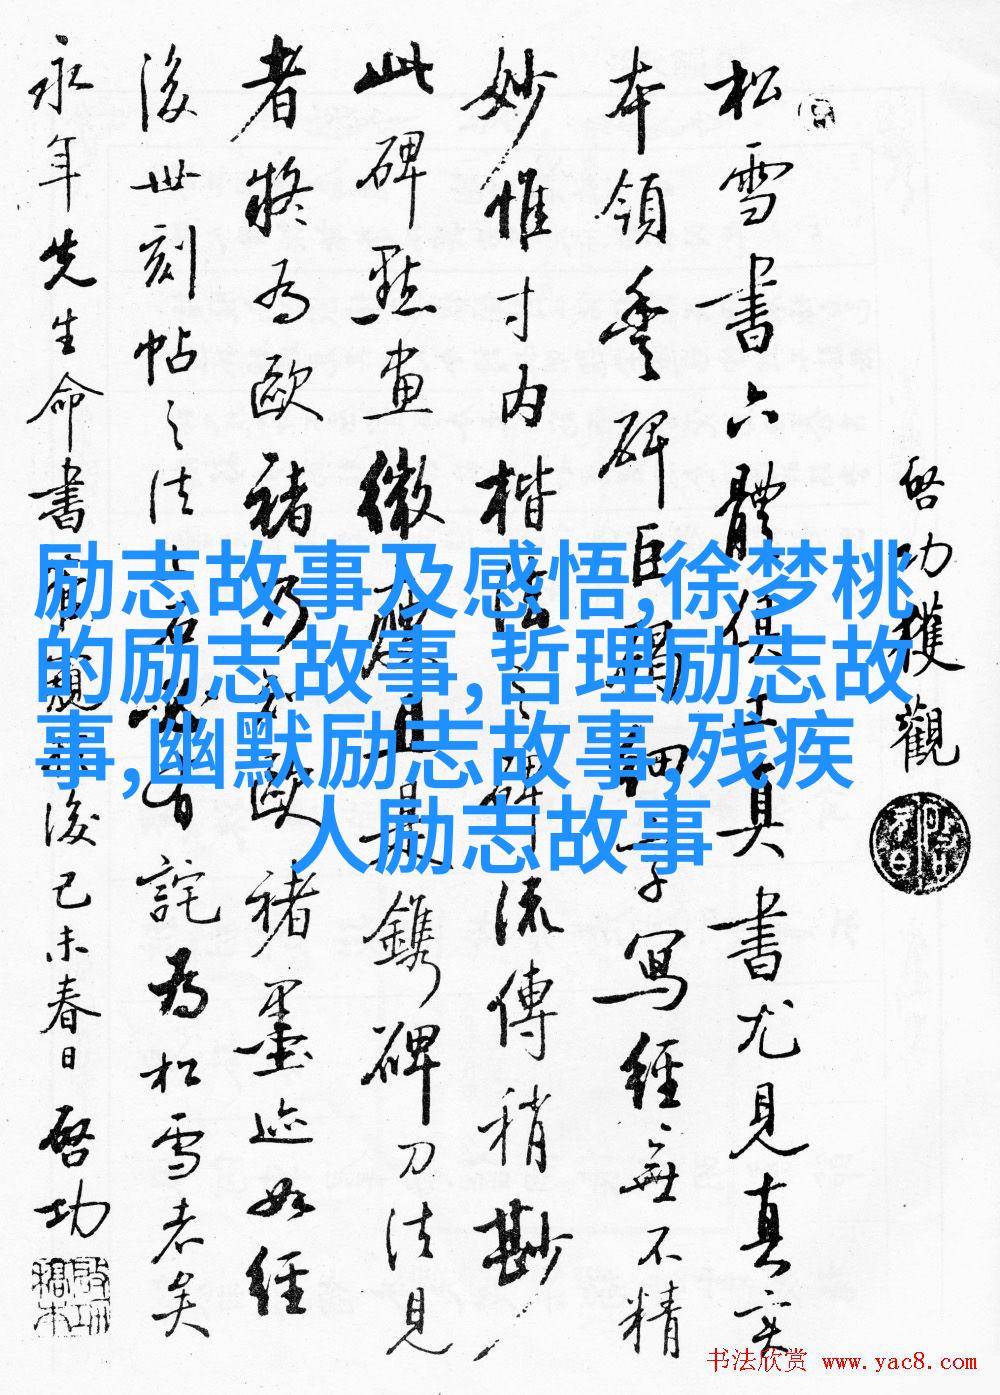 启功獲觀
松雪書六體俱工真書尤見真實
本領豊碑巨碣細字寫經無不精
妙惟寸内楷法之碑流傳稍尠
此碑點畫微豊且鐫碑刀法見
者疑為歐褚乃知歐褚墨迹如經
後世刻帖之法也名賢有詫為松雪者矣
永年先生命書觀後己未春日启功
励志故事及感悟,徐梦桃
的励志故事,哲理励志故
事,幽默励志故事,残疾
人励志故事
书法欣赏 www.yac8.com